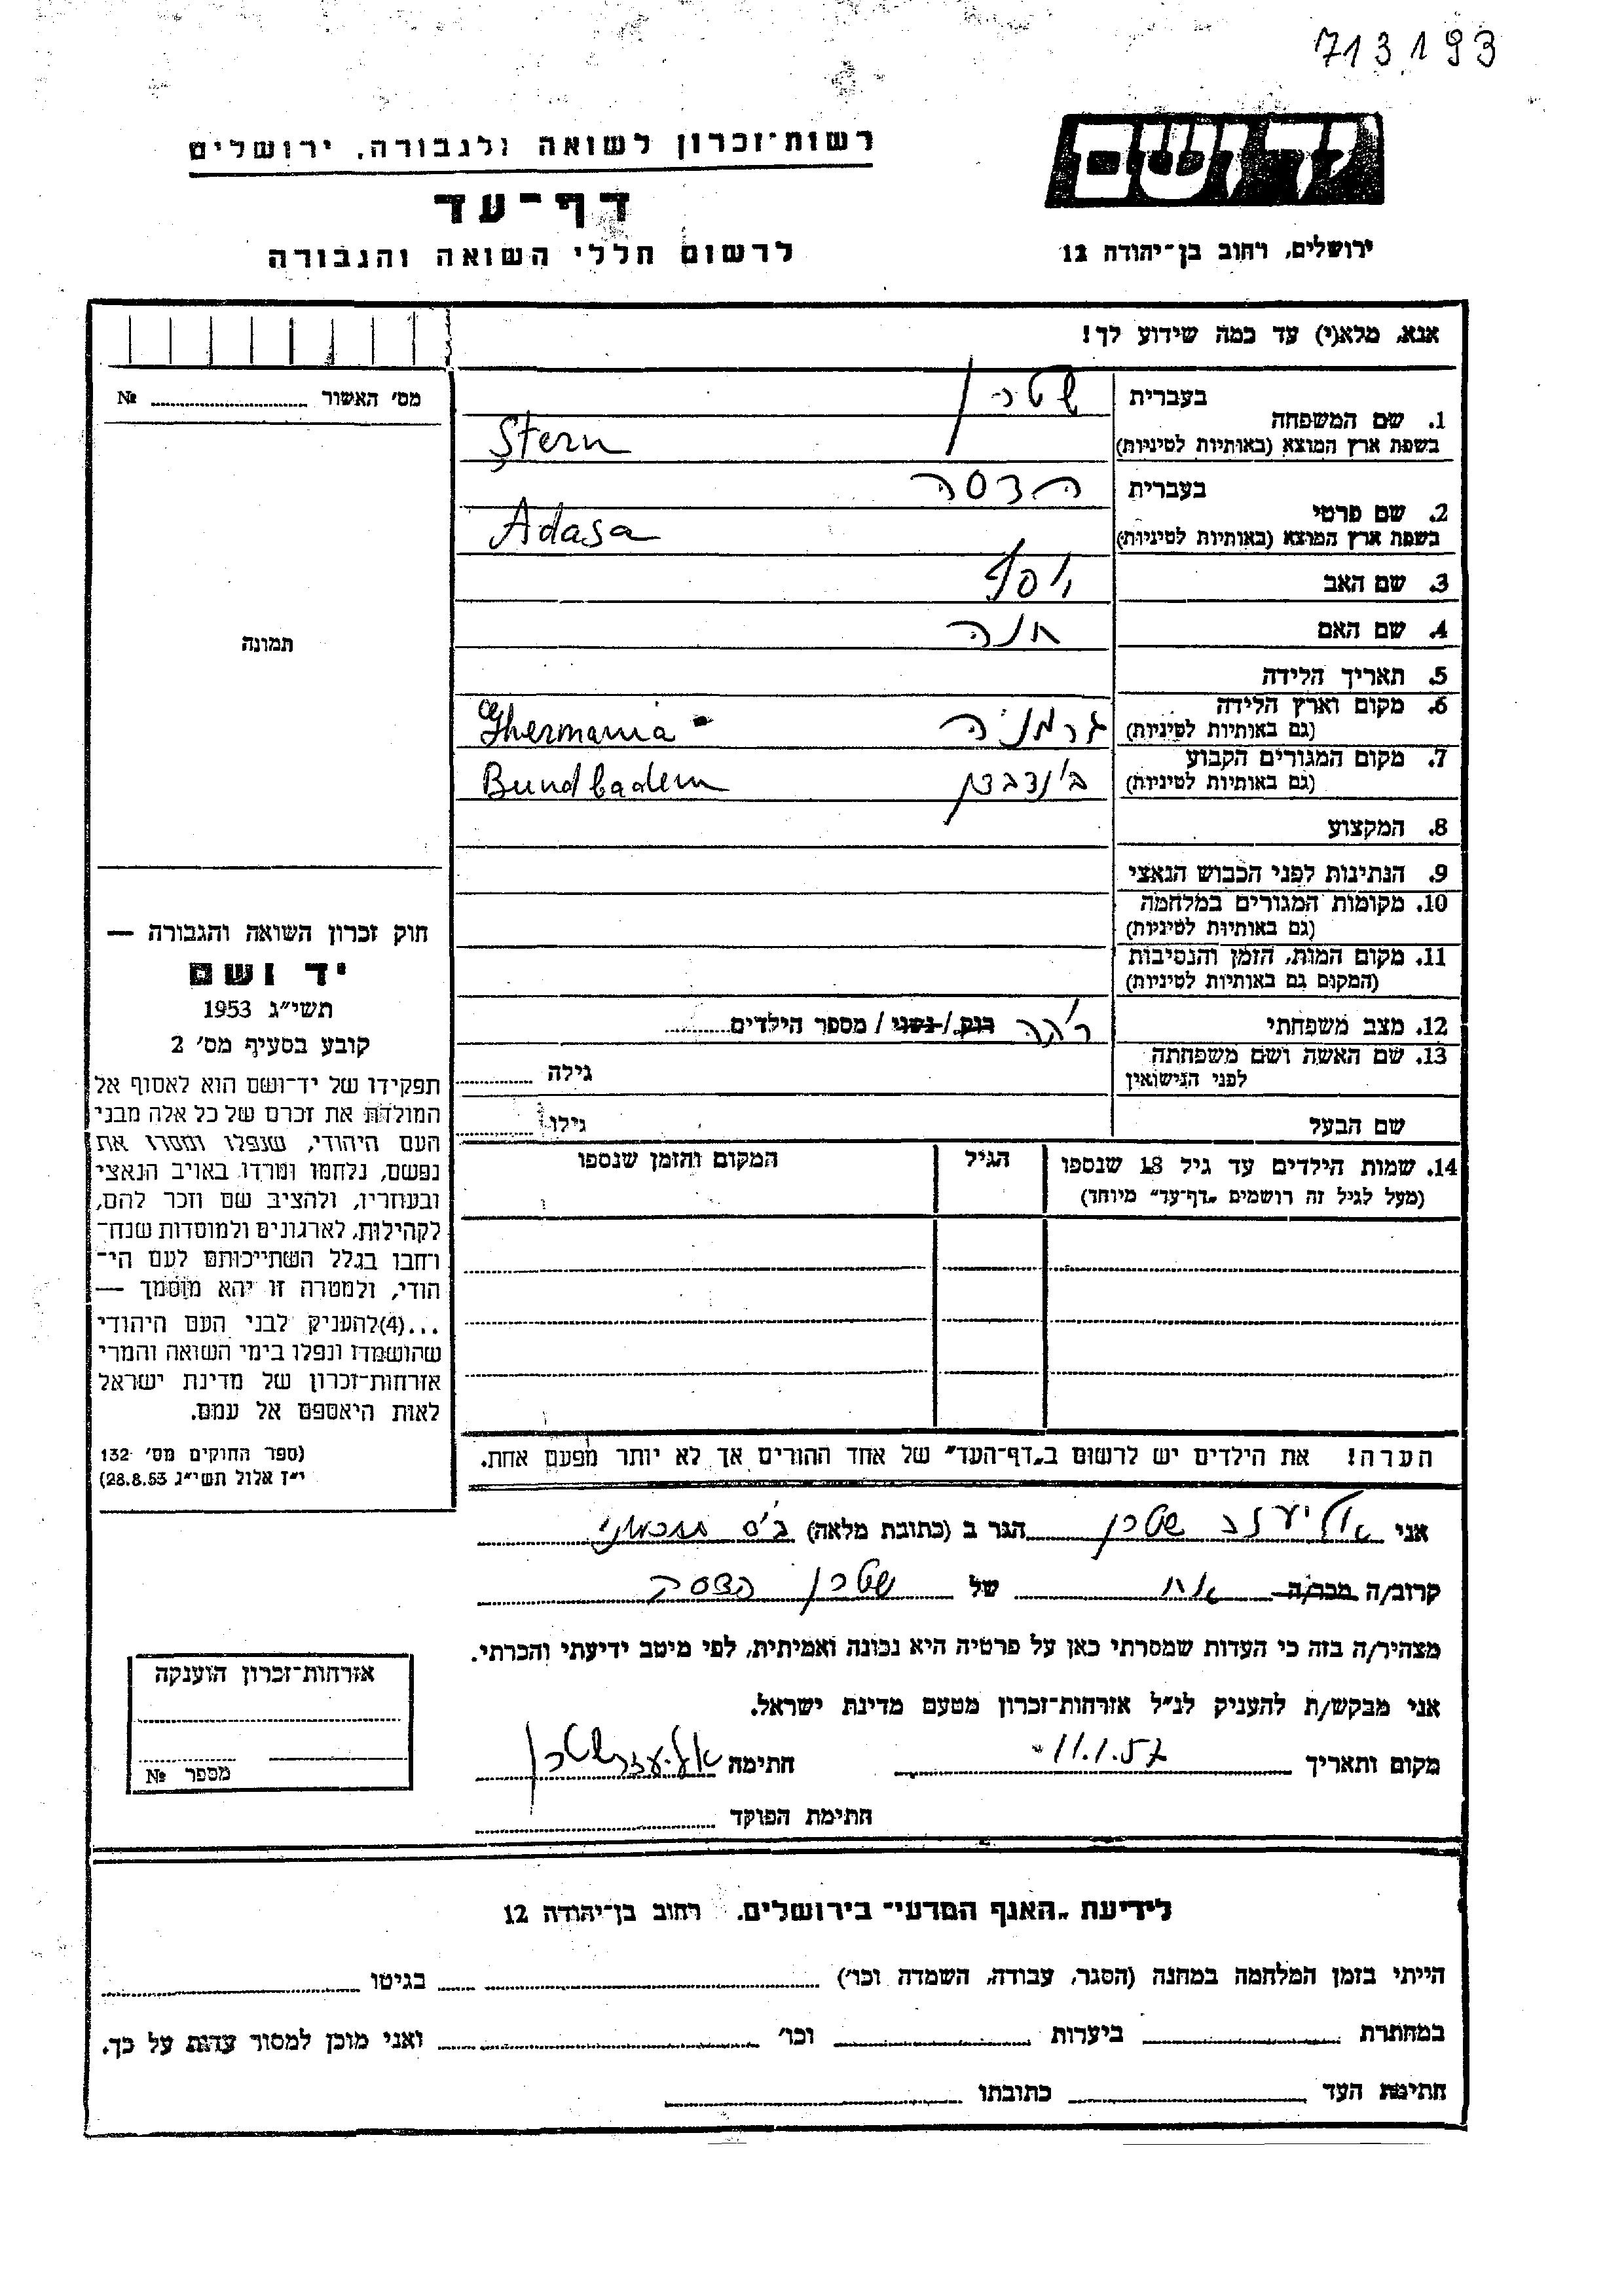 713193
יד ושם
רשות־זכרון לשואה ולגבורה, ירושלים
דף־עד
לרשום חללי השואה והגבורה
ירושלים, רחוב בן־יהודה 12
אנא, מלא(י) עד כמה שידוע לך!
מס' האשור № 
בעברית שטרן
1. שם המשפחה
בשפת ארץ המוצא (באותיות לטיניות) Ştern
בעברית הדסה
2. שם פרטי
בשפת ארץ המוצא (באותיות לטיניות) Adasa
3. שם האב יוסף
4. שם האם חנה
5. תאריך הלידה
6. מקום וארץ הלידה
(גם באותיות לטיניות) גרמניה Ghermania
7. מקום המגורים הקבוע
(גם באותיות לטיניות) בונדבדן Bundbadem
8. המקצוע
9. הנתינות לפני הכבוש הנאצי
10. מקומות המגורים במלחמה
(גם באותיות לטיניות)
11. מקום המות, הזמן והנסיבות
(המקום גם באותיות לטיניות)
12. מצב משפחתי רוקה רווק / נשוי / מספר הילדים
13. שם האשה ושם משפחתה
לפני הנישואין
גילה
שם הבעל גילו
14. שמות הילדים עד גיל 18 שנספו
(מעל לגיל זה רושמים „דף־עד" מיוחד)
הגיל
המקום והזמן שנספו
הערה! את הילדים יש לרשום ב„דף־העד" של אחד ההורים אך לא יותר מפעם אחת.
תמונה
חוק זכרון השואה והגבורה —
יד ושם
תשי"ג 1953
קובע בסעיף מס' 2
תפקידו של יד־ושם הוא לאסוף אל
המולדת את זכרם של כל אלה מבני
העם היהודי, שנפלו ומסרו את
נפשם, נלחמו ומרדו באויב הנאצי
ובעוזריו, ולהציב שם וזכר להם,
לקהילות, לארגונים ולמוסדות שנח־
רחבו בגלל השתייכותם לעם הי־
הודי, ולמטרה זו יהא מוסמך —
...(4)להעניק לבני העם היהודי
שהושמדו ונפלו בימי השואה והמרי
אזרחות־זכרון של מדינת ישראל
לאות היאספם אל עמם.
(ספר החוקים מס' 132
י"ז אלול תשי"ג 28.8.53)
אני אליעזר שטרן הגר ב (כתובת מלאה)
קרוב/ה מכר/ה אח של שטרן הדסה
מצהיר/ה בזה כי העדות שמסרתי כאן על פרטיה היא נכונה ואמיתית, לפי מיטב ידיעתי והכרתי.
אני מבקש/ת להעניק לנ"ל אזרחות־זכרון מטעם מדינת ישראל.
מקום ותאריך 11.1.57 חתימה אליעזר שטרן
חתימת הפוקד
אזרחות־זכרון הוענקה
מספר №
לידיעת „האגף המדעי" בירושלים. רחוב בן־יהודה 12
הייתי בזמן המלחמה במחנה (הסגר, עבודה, השמדה וכו') בגיטו
במחתרת ביערות וכו' ואני מוכן למסור עדות על כך.
חתימת העד כתובתו